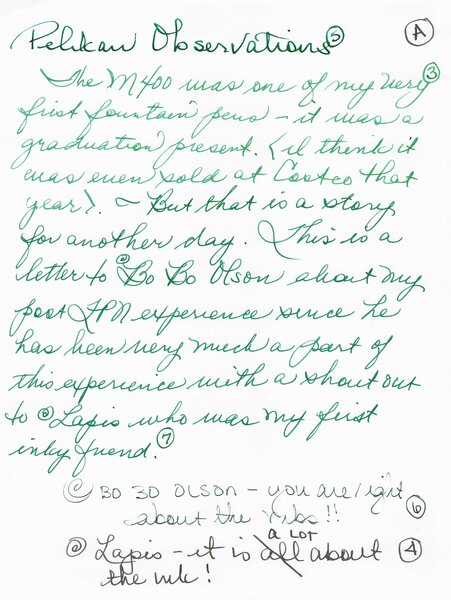 Pelikan Observations ⑤ Ⓐ
The M400 was one of my very ③
first fountain pens - it was a
graduation present. (I think it
was even sold at Costco that
year). ~ But that is a story
for another day. This is a
letter to @Bo Bo Olson about my
post FPN experience since he
has been very much a part of
this experience with a shout out
to @Lapis who was my first
inky friend. ⑦
@ BO BO OLSON - you are right
about the nibs!! ⑥
a LOT
@ Lapis - it is all about ④
the ink!